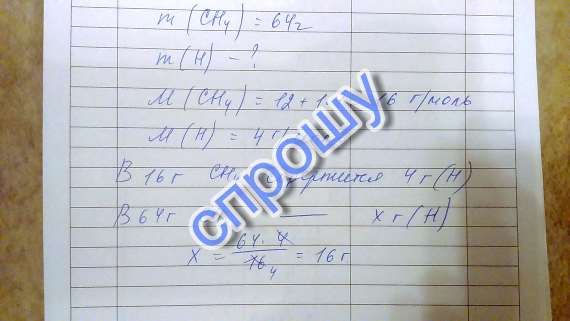 m (CH₄) = 64г
m (H) - ?
M (CH₄) = 12 + 1 16 г/моль
M (H) = 4 г/
В 16 г CH₄ 4 г (H)
В 64г — x г (H)
x = 64 · 4 / 16 4 = 16 г
спрошу